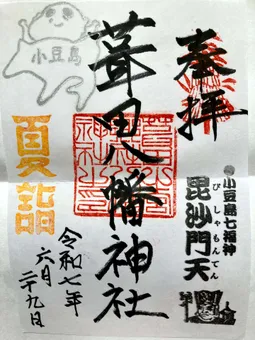 奉拝
小豆島七福神
毘沙門天
びしゃもんてん
葺田八幡神社
小豆島
夏詣
令和七年
六月二十九日